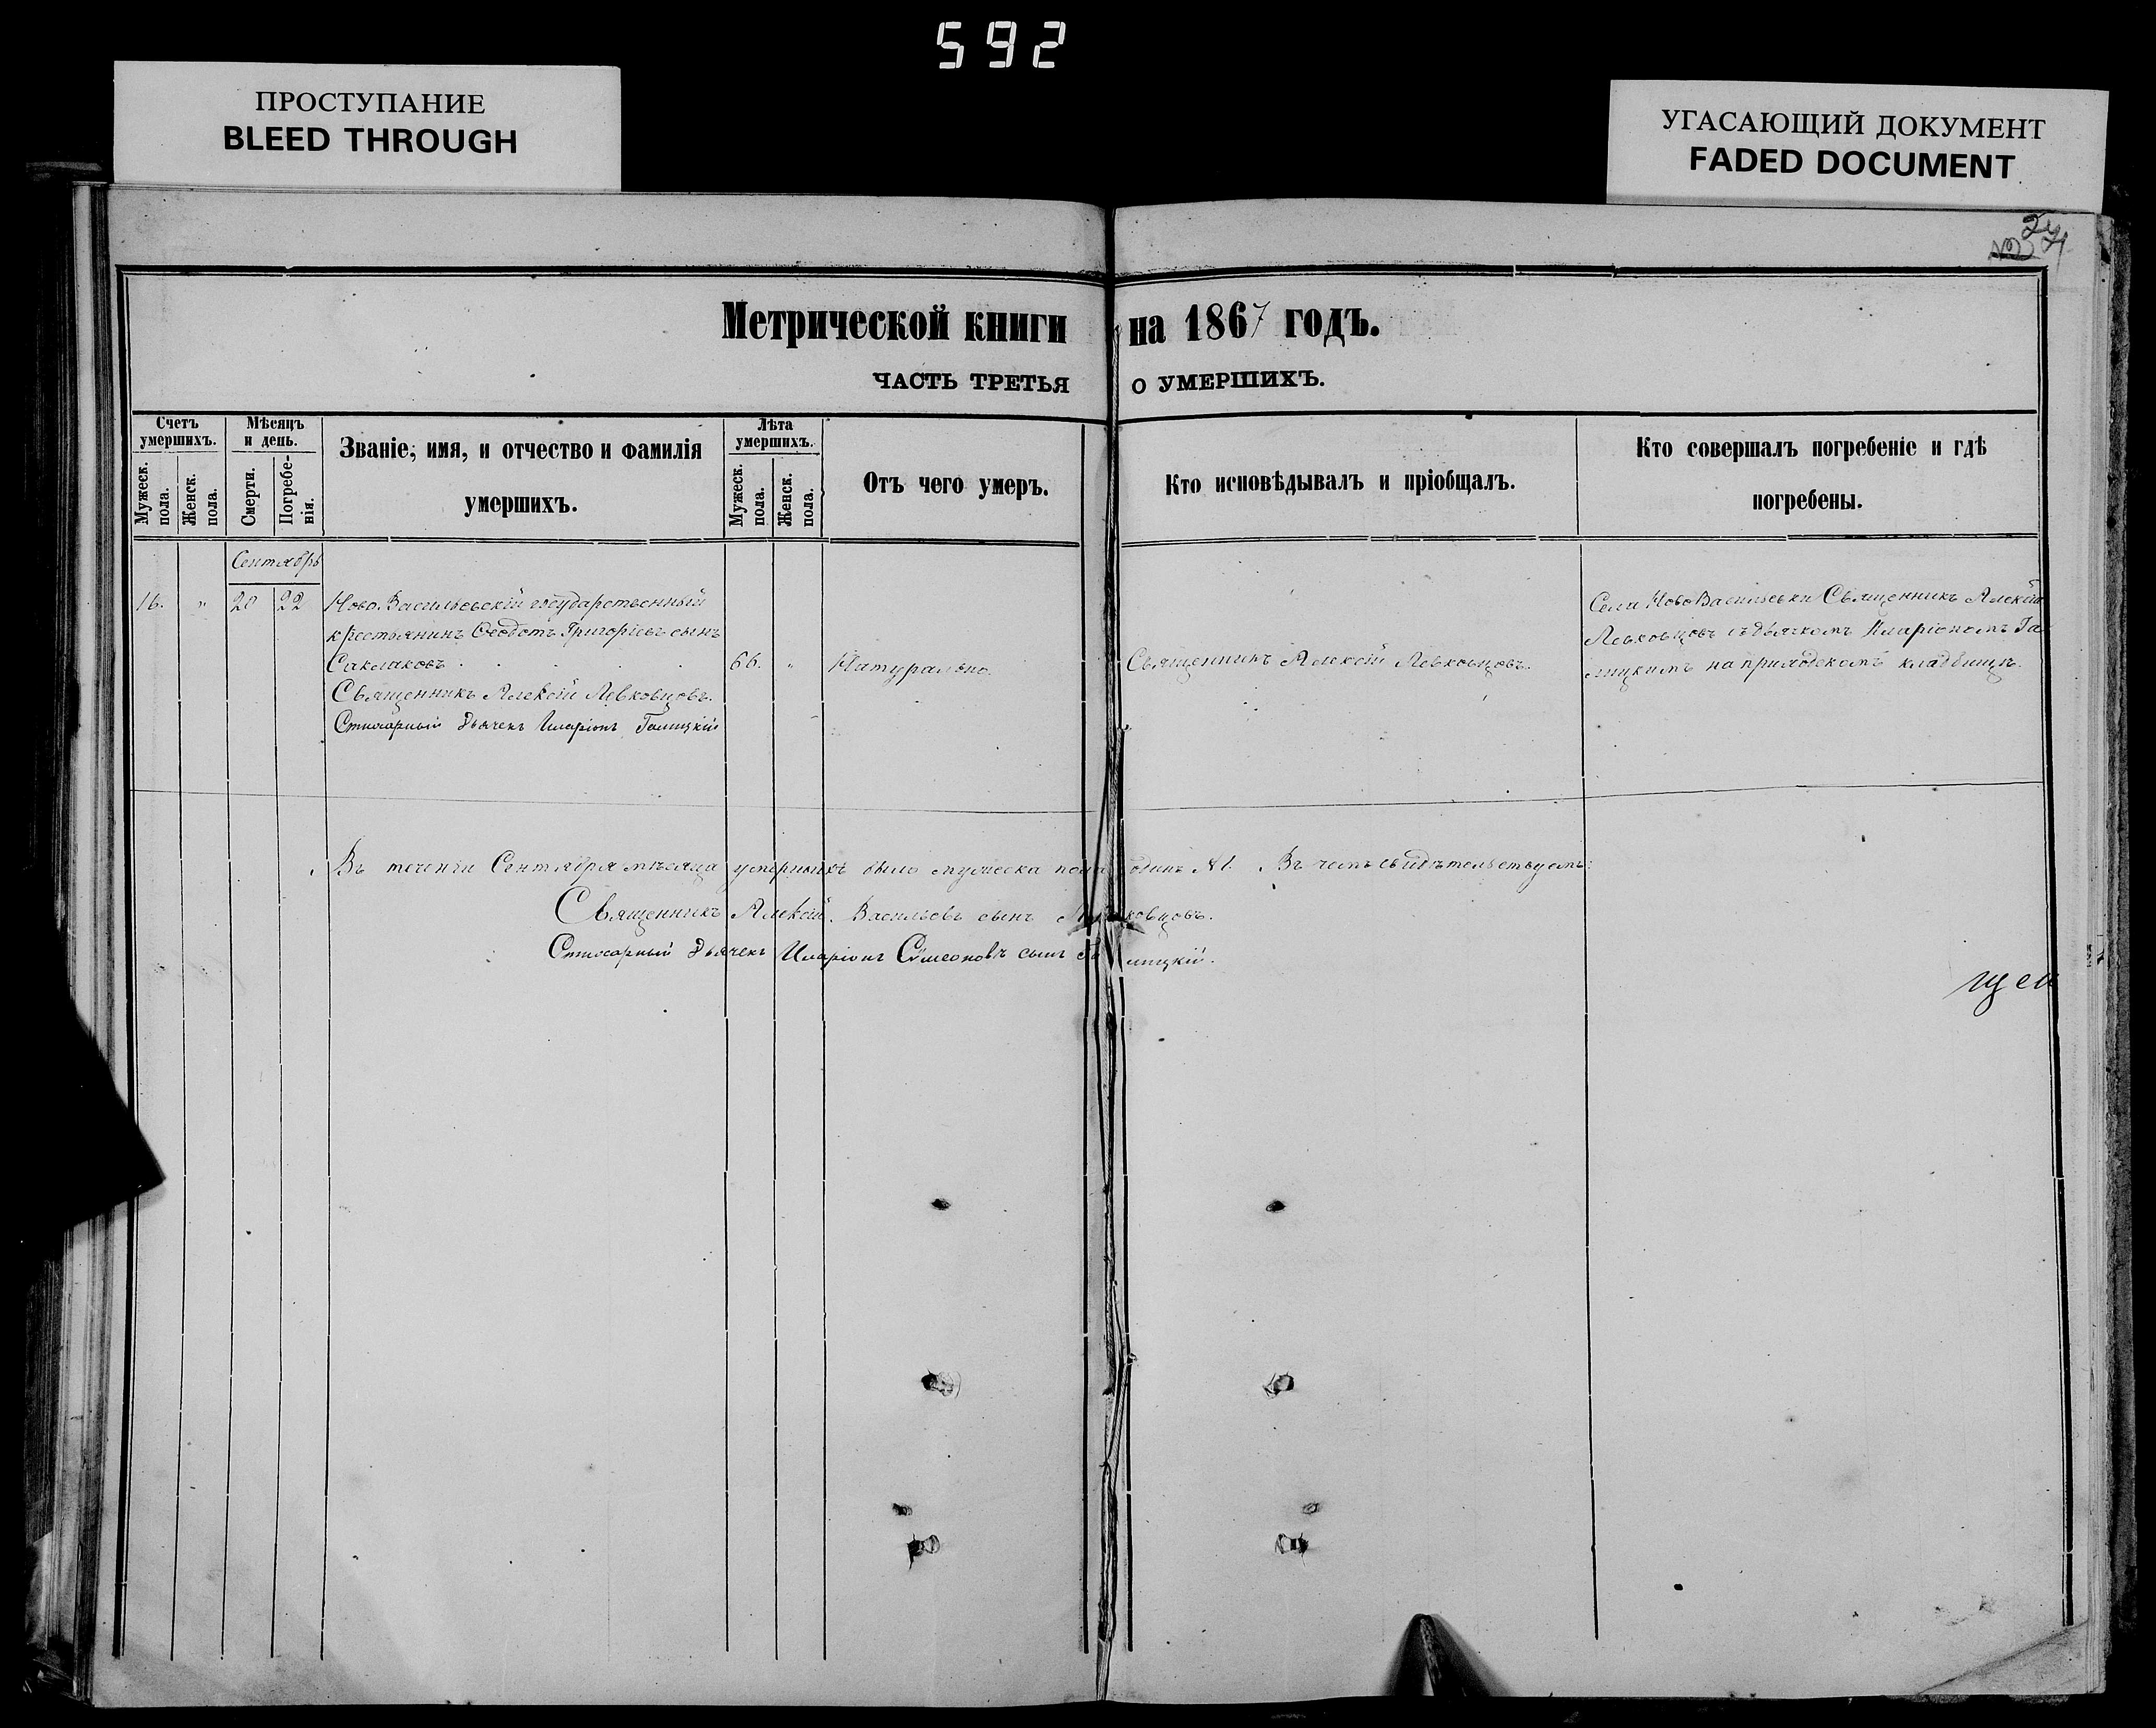 592
ПРОСТУПАНИЕ
BLEED THROUGH
УГАСАЮЩИЙ ДОКУМЕНТ
FADED DOCUMENT
Метрической книги на 1867 годъ.
ЧАСТЬ ТРЕТЬЯ О УМЕРШИХЪ.
Счетъ умершихъ.
Мужеск. пола.
Женск. пола.
Мѣсяцъ и день.
Смерти.
Погребенія.
Званіе, имя, и отчество и фамилія
умершихъ.
Лѣта умершихъ.
Мужеск. пола.
Женск. пола.
Отъ чего умеръ.
Кто исповѣдывалъ и пріобщалъ.
Кто совершалъ погребеніе и гдѣ
погребены.
Сентябрь
16. " 20 22
Ново.Васильевскій государственный
крестьянинъ Ѳеодотъ Григоріевъ сынъ
Саклаковъ
66. "
Натурально.
Священникъ Алексій Левковцовъ.
Стихарный Дьячекъ Иларіонъ Галицкій
Священникъ Алексій Левковцовъ.
Села НовоВасильевки Священникъ Алексій
Левковцовъ съ дьячкомъ Иларіономъ Га
лицкимъ на приходскомъ кладбищѣ.
Въ теченіи Сентября мѣсяца умершихъ было мужеска пола одинъ №1. Въ чемъ свидѣтельствуемъ:
Священникъ Алексій Васильевъ сынъ Левковцовъ.
Стихарный Дьячекъ Иларіонъ Симеоновъ сынъ Галицкій.
щен